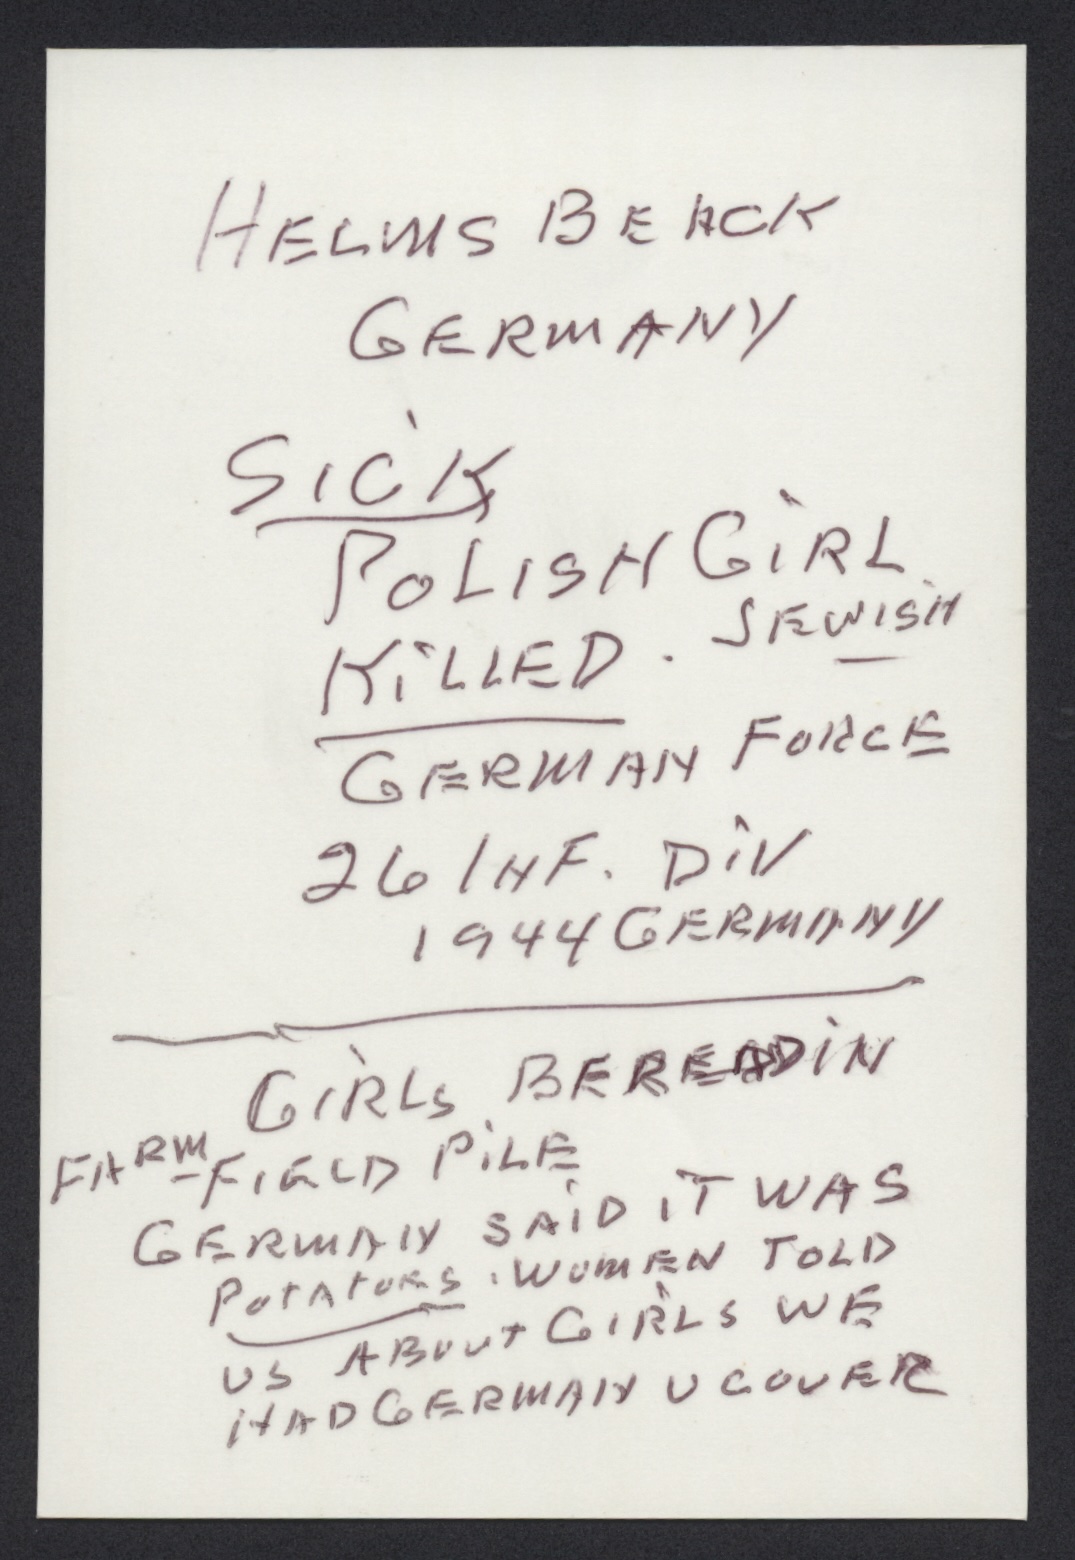 HELMS BEACK
GERMANY
SICK
POLISH GIRL
KILLED. JEWISH
GERMAN FORCE
26 INF. DIV
1944 GERMANY
GIRLS BEREADIN
FARM-FIELD PILE
GERMAN SAID IT WAS
POTATOES. WOMEN TOLD
US ABOUT GIRLS WE
HAD GERMAN UCOVER